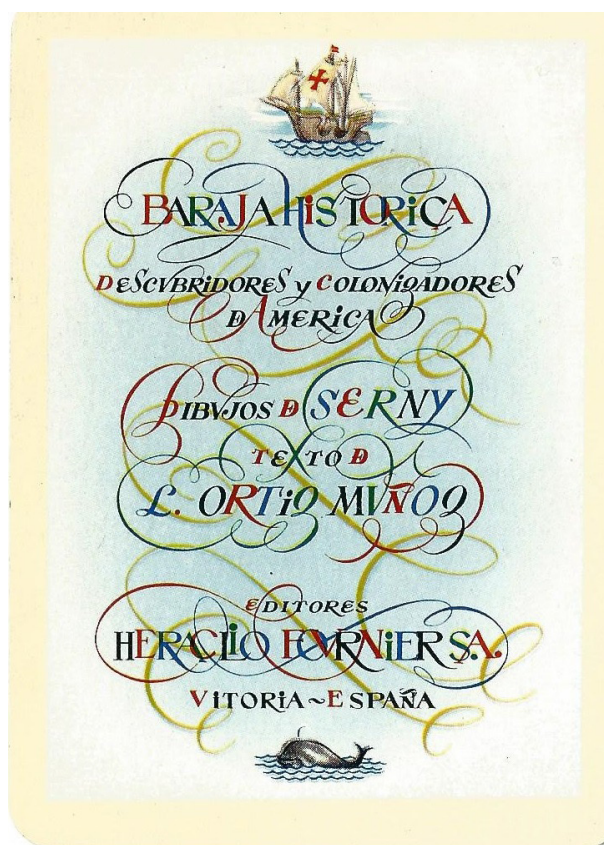 BARAJA HiSTORiCA
DESCVBRiDORES y COLONiZADORES
D AMERiCA
DIBVJOS D SERNY
TEXTO D
L. ORTiZ MVÑOZ
EDITORES
HERACLiO FOVRNiER S.A.
ViTORiA~ESPAÑA